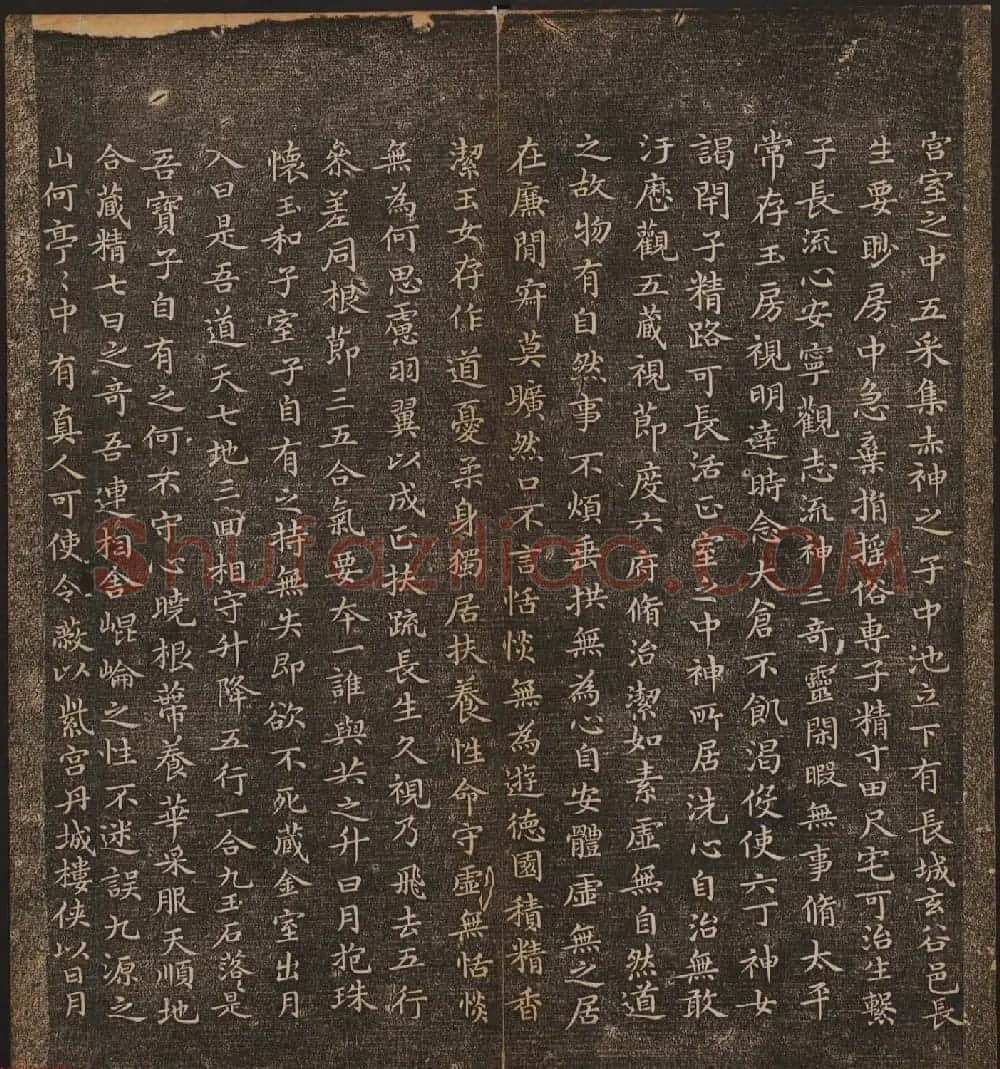 宫室之中五采集赤神之子中池立下有長城玄谷邑長
生要眇房中急棄捐搖俗専子精寸田尺宅可治生繫
子長流心安寧觀志流神三奇靈閑暇無事脩太平
常存玉房視明達時念大倉不飢渴役使六丁神女
謁閇子精路可長活正室之中神所居洗心自治無敢
汙歷觀五蔵視節度六府脩治潔如素虛無自然道
之故物有自然事不煩垂拱無為心自安體虛無之居
在廉閒㝥莫曠然口不言恬惔無為遊德園積精香
潔玉女存作道憂柔身獨居扶養性命守虛無恬惔
無為何思慮羽翼以成正扶疏長生久視乃飛去五行
叅差同根節三五合氣要夲一誰與共之升日月抱珠
懷玉和子室子自有之持無失即欲不死蔵金室出月
入日是吾道天七地三回相守升降五行一合九玉石落〻是
吾寶子自有之何不守心曉根蔕養華采服天順地
合蔵精七日之奇吾連相舎崐崘之性不迷誤九源之
山何亭〻中有真人可使令蔽以紫宫丹城樓侠以日月
Shufaziliao.COM